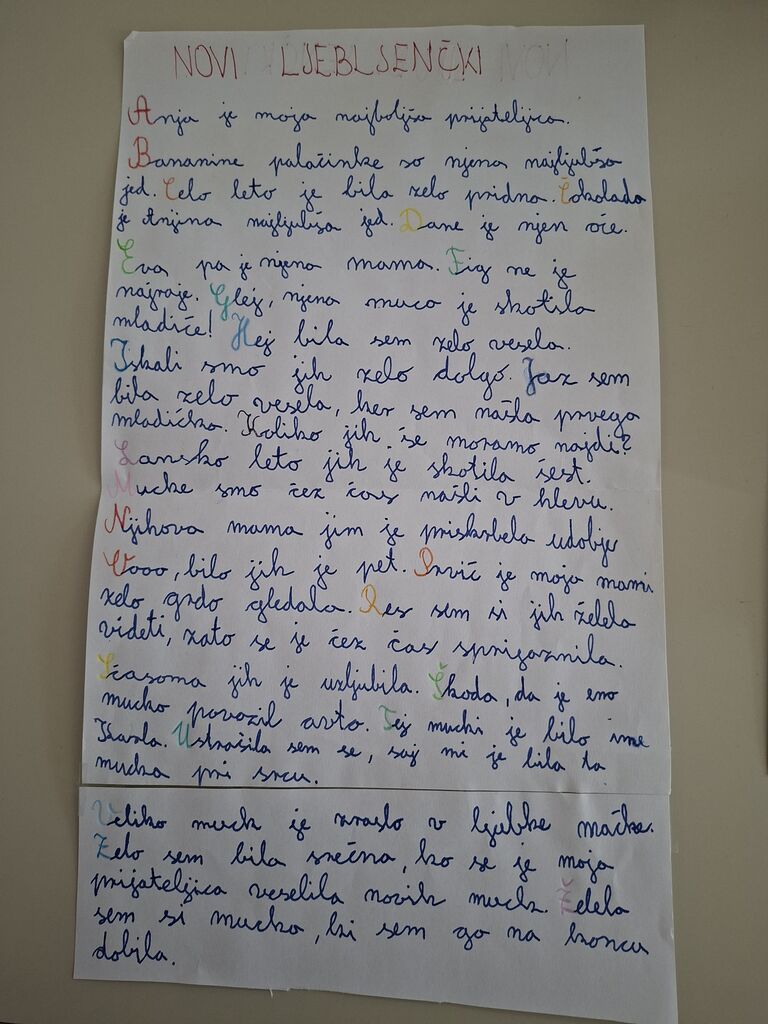 NOVI LJEBLJENČKI
Anja je moja najboljša prijateljica.
Bananine palačinke so njena najljubša
jed. Celo leto je bila zelo pridna. Čokolada
je Anjina najljubša jed. Dane je njen oče.
Eva pa je njena mama. Fig ne je
najraje. Glej, njena muca je skotila
mladiče! Hej bila sem zelo vesela.
Iskali smo jih zelo dolgo. Jaz sem
bila zelo vesela, ker sem našla prvega
mladička. Koliko jih še moramo najdi?
Lansko leto jih je skotila šest.
Mucke smo čez čas našli v hlevu.
Njihova mama jim je priskrbela udobje
Oooo, bilo jih je pet. Prvič je moja mami
zelo grdo gledala. Res sem si jih želela
videti, zato se je čez čas sprijaznila.
Sčasoma jih je vzljubila. Škoda, da je eno
mucko povozil avto. Tej mucki je bilo ime
Karla. Ustrašila sem se, saj mi je bila ta
mucka pri srcu.
Veliko muck je zraslo v ljubke mačke.
Zelo sem bila srečna, ko se je moja
prijateljica veselila novih muck. Želela
sem si mucko, ki sem go na koncu
dobila.